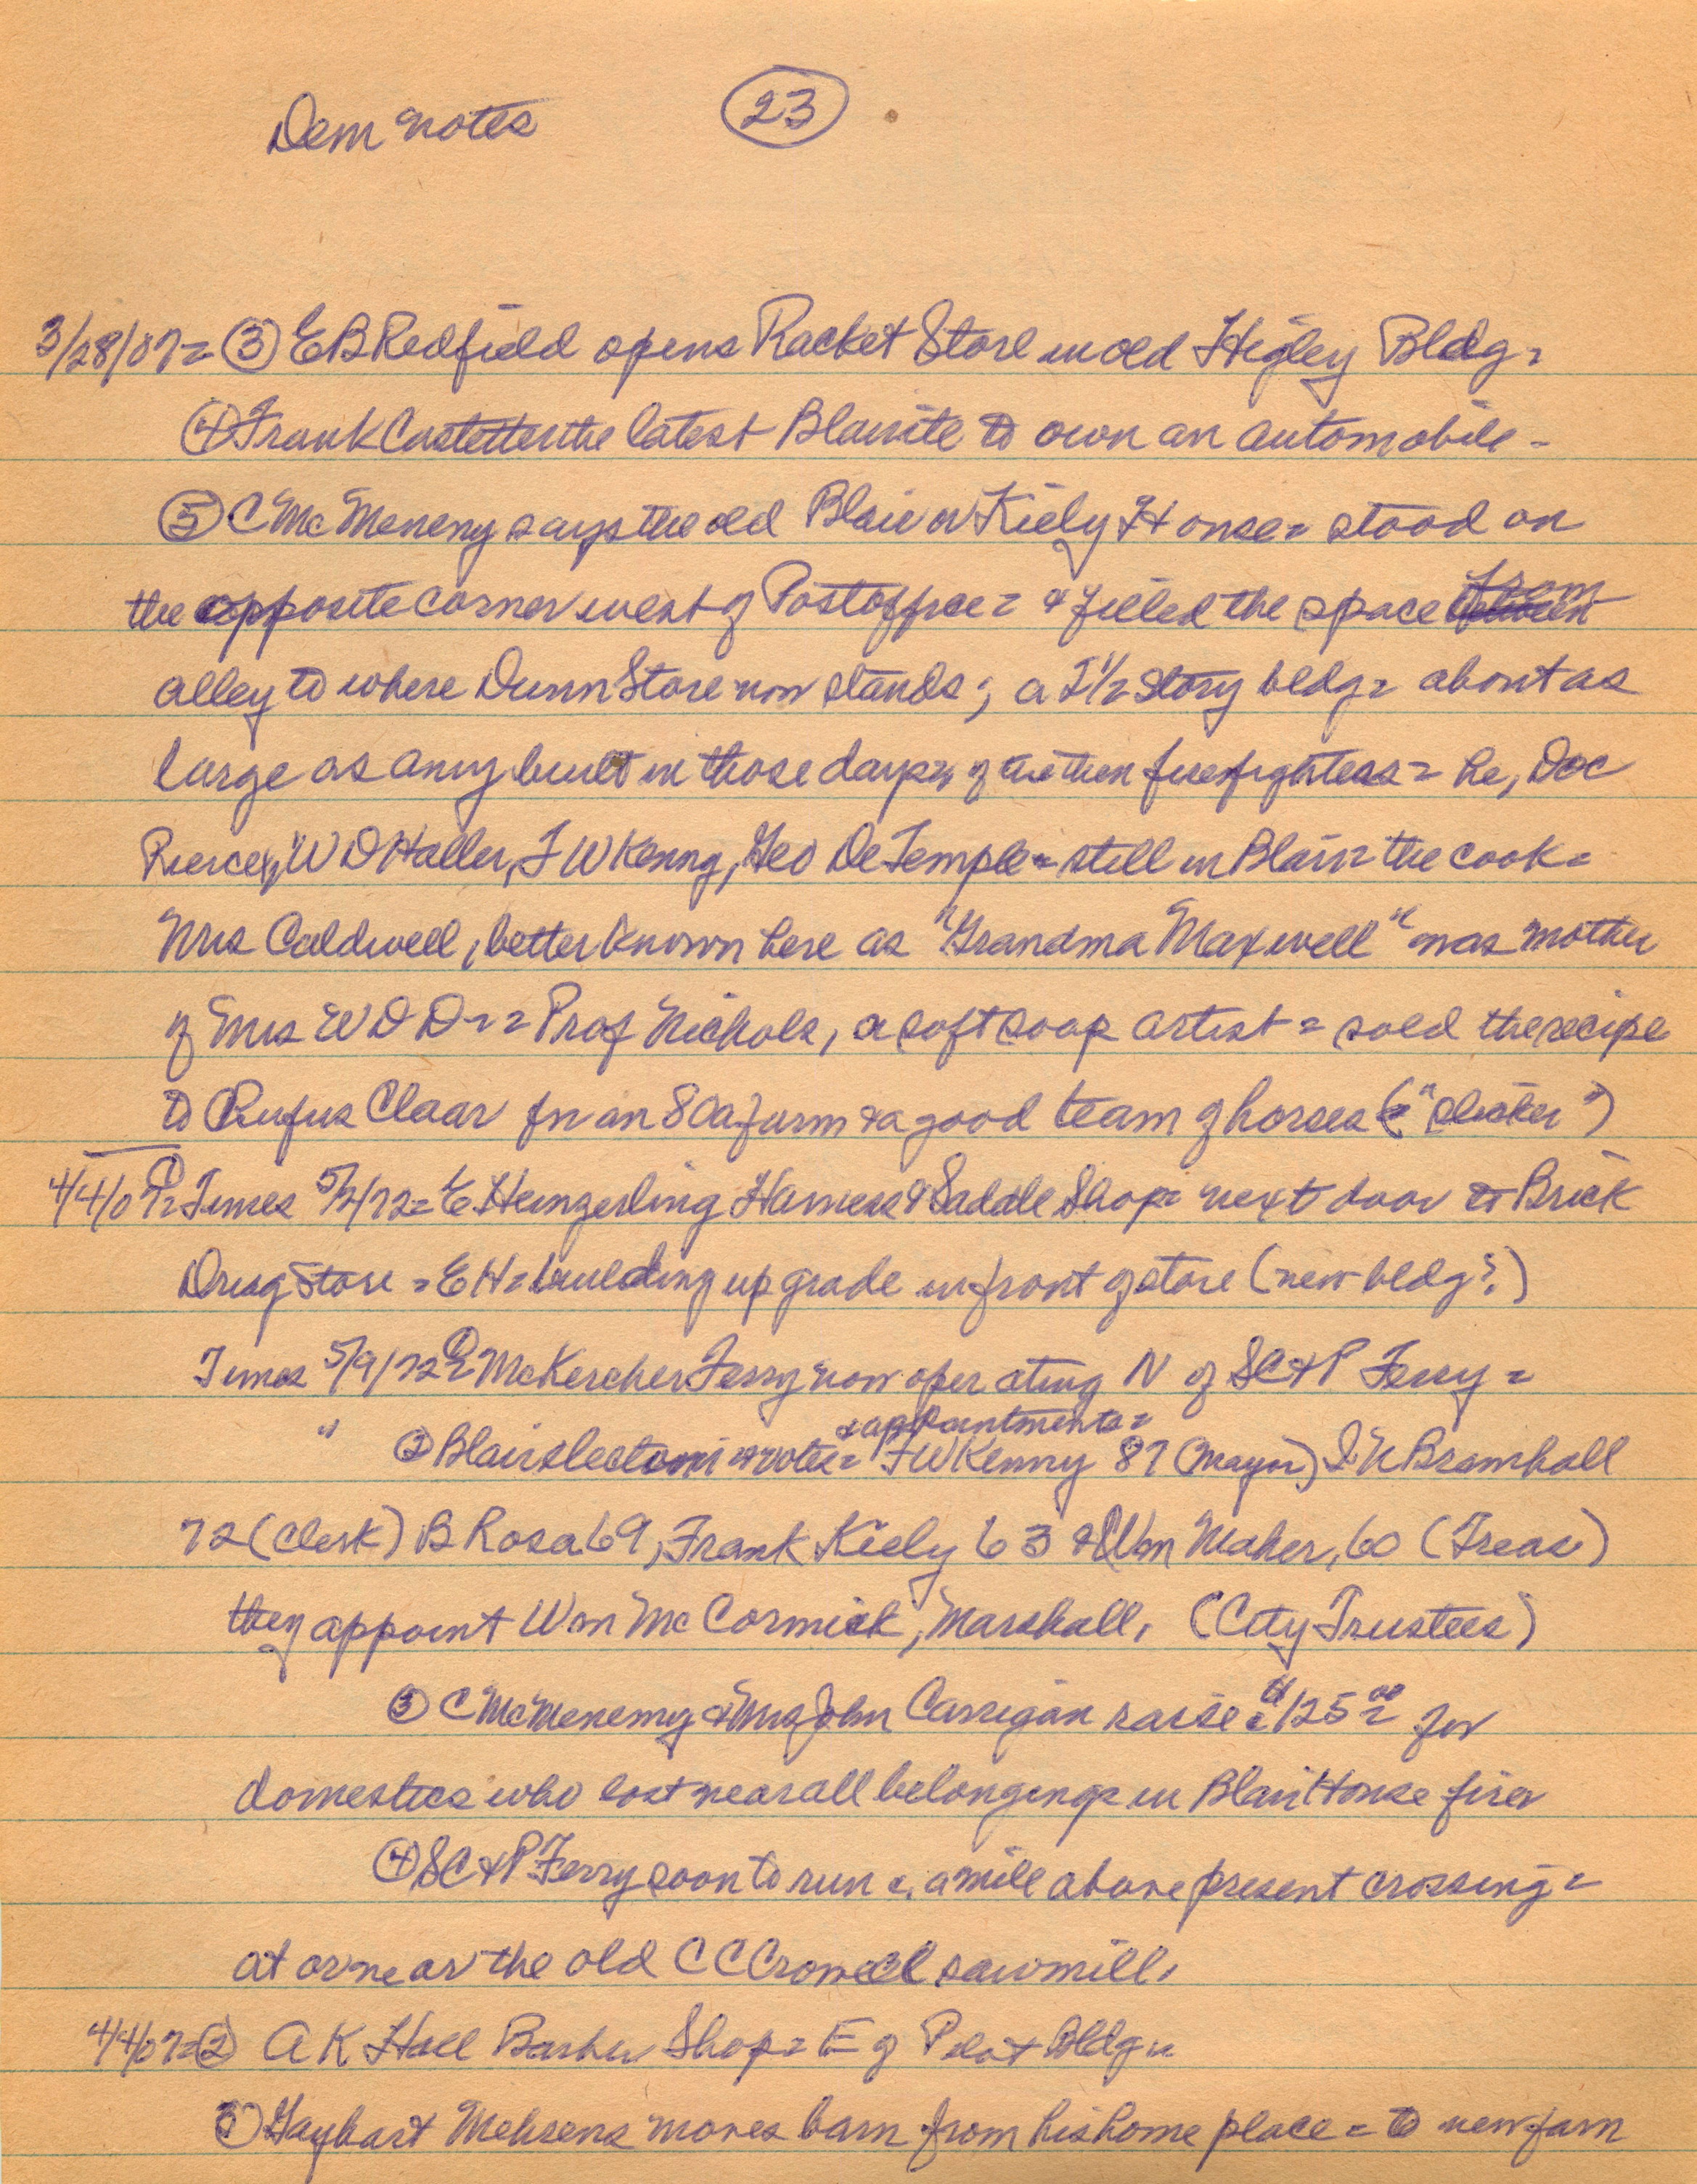 Dem notes (23)
3/28/07= ③ EB Redfield opens Racket Store in old Higley Bldg=
④ Frank Castetter the latest Blairite to own an automobile -
⑤ C McMeneny says the old Blair or Kiely House= stood on
the opposite corner west of Postoffice= & filled the space from
alley to where Dunn Store now stands; a 2 1/2 story bldg= about as
large as any built in those days= of the then firefighters= he, Doc
Pierce, W D Haller, F W Kenny, Geo DeTemple= still in Blair= the cook=
Mrs Caldwell, better known here as "Grandma Maxwell" was mother
of Mrs W D D-= Prof Nichols, a soft soap artist= sold the recipe
to Rufus Claar for an 80a farm & a good team of horses ("slicker")
4/4/07= ① Times 5/2/72= E Heinzerling Harness & Saddle Shop= next door to Brick
Drug Store = EH= building up grade in front of store (new bldg?)
Times 5/9/72 ① E McKercher Ferry now operating N of SC&P Ferry=
& appointments=
" ② Blair election votes= F W Kenny 87 (Mayor) Bramhall
72 (Clerk) B Rosa 69, Frank Kiely 63 & Wm Maher, 60 (Treas)
they appoint Wm McCormick, Marshall, (City Trustees)
③ C McMenemy & Mrs John Carrigan raise $125.00 for
domestics who lost near all belongings in Blair House fire=
④ SC&P Ferry soon to run a mile above present crossing=
at or near the old C C Crowell sawmill.
4/4/07= ② A K Hall Barber Shop= E of Pilot Bldg=
③ Gayhart Mehrens moves barn from his home place= to new farm